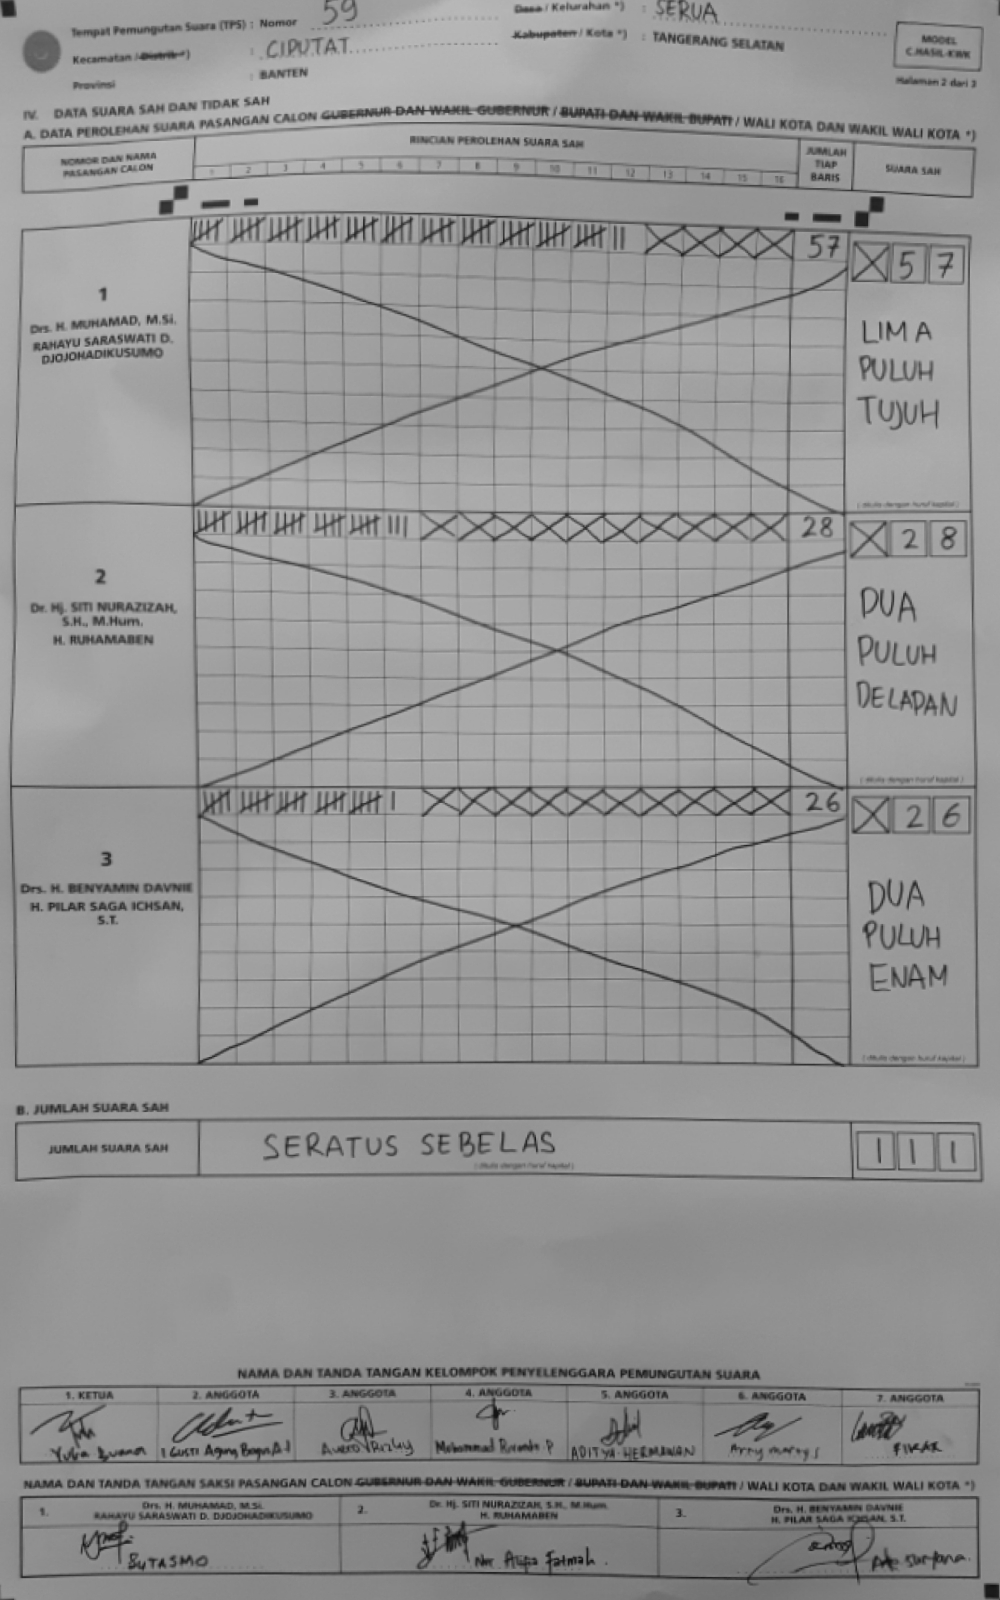 Tempat Pemungutan Suara (TPS) : Nomor 59
Desa / Kelurahan *) : SERUA
Kecamatan / Distrik *) : CIPUTAT
Kabupaten / Kota *) : TANGERANG SELATAN
Provinsi : BANTEN
MODEL
C.HASIL-KWK
Halaman 2 dari 3
IV. DATA SUARA SAH DAN TIDAK SAH
A. DATA PEROLEHAN SUARA PASANGAN CALON GUBERNUR DAN WAKIL GUBERNUR / BUPATI DAN WAKIL BUPATI / WALI KOTA DAN WAKIL WALI KOTA *)
NOMOR DAN NAMA
PASANGAN CALON
RINCIAN PEROLEHAN SUARA SAH
1 2 3 4 5 6 7 8 9 10 11 12 13 14 15 16
JUMLAH
TIAP
BARIS
SUARA SAH
1
Drs. H. MUHAMAD, M.Si.
RAHAYU SARASWATI D.
DJOJOHADIKUSUMO
57
X 5 7
LIMA
PULUH
TUJUH
(ditulis dengan huruf kapital)
2
Dr. Hj. SITI NURAZIZAH,
S.H., M.Hum.
H. RUHAMABEN
28
X 2 8
DUA
PULUH
DELAPAN
(ditulis dengan huruf kapital)
3
Drs. H. BENYAMIN DAVNIE
H. PILAR SAGA ICHSAN,
S.T.
26
X 2 6
DUA
PULUH
ENAM
(ditulis dengan huruf kapital)
B. JUMLAH SUARA SAH
JUMLAH SUARA SAH
SERATUS SEBELAS
(ditulis dengan huruf kapital)
1 1 1
NAMA DAN TANDA TANGAN KELOMPOK PENYELENGGARA PEMUNGUTAN SUARA
1. KETUA 2. ANGGOTA 3. ANGGOTA 4. ANGGOTA 5. ANGGOTA 6. ANGGOTA 7. ANGGOTA
I Gusti Agung Bagus Rizky Mohammad ADITYA HERMAWAN FIKAR
NAMA DAN TANDA TANGAN SAKSI PASANGAN CALON GUBERNUR DAN WAKIL GUBERNUR / BUPATI DAN WAKIL BUPATI / WALI KOTA DAN WAKIL WALI KOTA *)
1. Drs. H. MUHAMAD, M.Si.
RAHAYU SARASWATI D. DJOJOHADIKUSUMO
SUTASMO
2. Dr. Hj. SITI NURAZIZAH, S.H., M.Hum.
H. RUHAMABEN
Nur Fatmah
3. Drs. H. BENYAMIN DAVNIE
H. PILAR SAGA ICHSAN, S.T.
Suryana